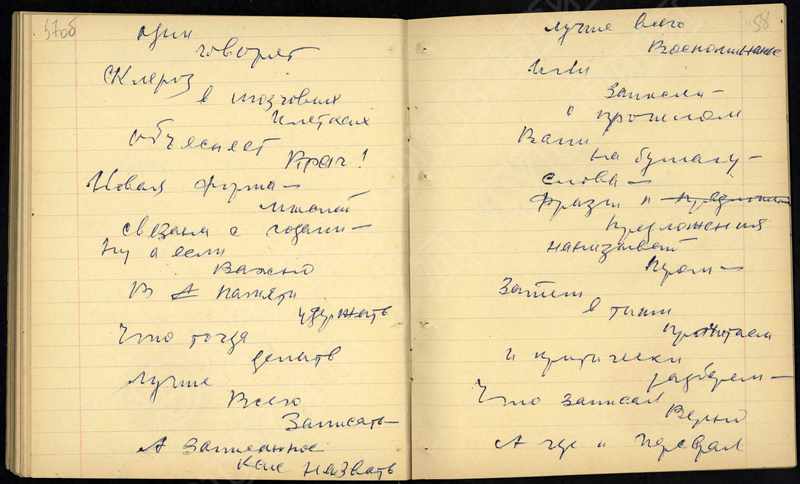 57об
один
говорят
Склероз
в мозговых
клетках
объясняет
Врач!
Новая форма —
мыслей
связана с годами —
Ну а если
Важно
В памяти
удержать
Что тогда
делать
Лучше
Всего
Записать —
А Записанное
как назвать
58
лучше всего
Воспоминанье
Или
Записки —
о прошлом
Ваши
на бумагу —
слова —
Фразы и
предложения
нанизывает
Затем
в тиши
прочитаем
и критически
разберем —
Что записал
Верно
А где и переврал